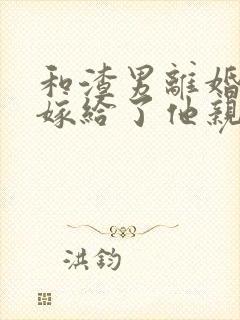 和渣男離婚
嫁給了他親
洪鈞